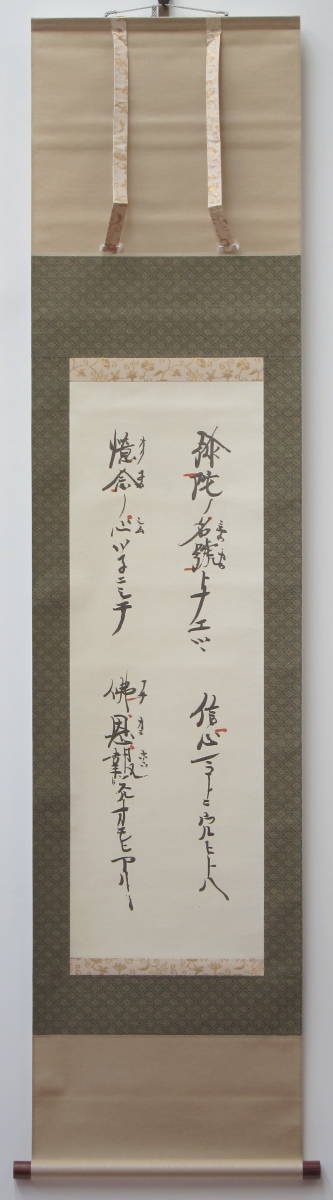 弥陀ノ名號トナエツヽ 信心マコトニウルヒトハ
憶念ノ心ツネニシテ 佛恩報スルオモヒアリ